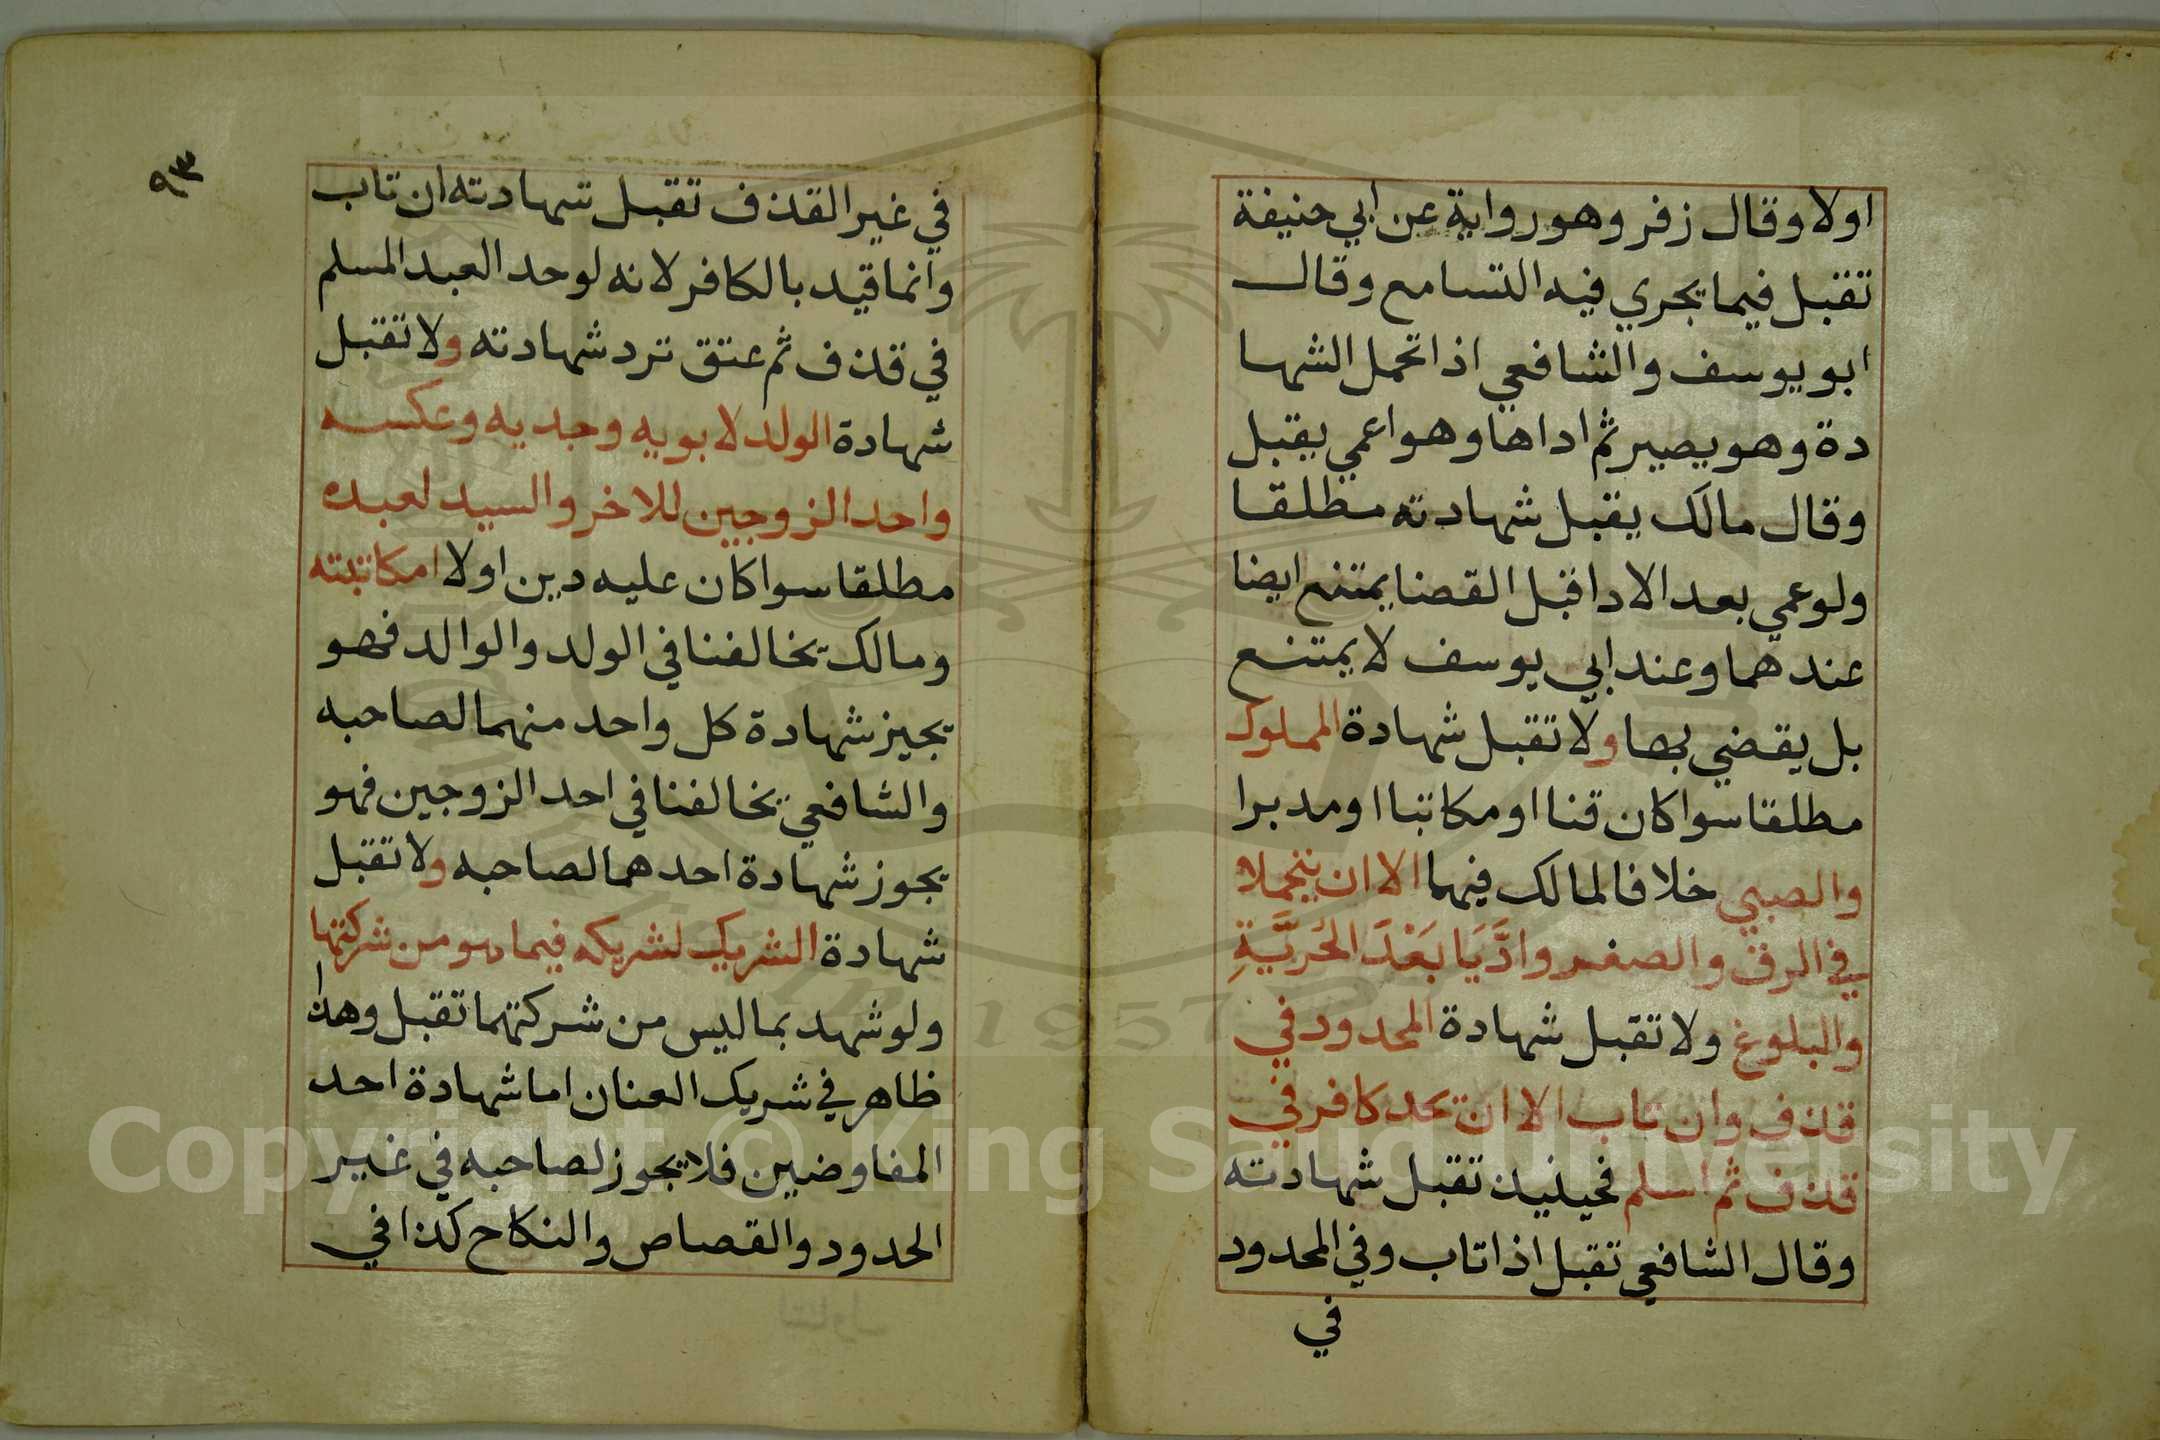 اولا وقال زفر وهو رواية عن ابي حنيفة
تقبل فيما يجري فيه التسامع وقال
ابو يوسف والشافعي اذا تحمل الشها
دة وهو بصير ثم اداها وهو اعمي يقبل
وقال مالك يقبل شهادته مطلقا
ولو عمي بعد الادا قبل القضا يمتنع ايضا
عندهما وعند ابي يوسف لا يمتنع
بل يقضي بها ولا تقبل شهادة المملوك
مطلقا سوا كان قنا او مكاتبا او مدبرا
والصبي خلافا لمالك فيهما الا ان يتحملا
في الرق والصغر وادَّيَا بَعْدَ الحُرِّيَّةِ
والبلوغ ولا تقبل شهادة المحدود في
قذف وان تاب الا ان يحد كافر في
قذف ثم اسلم فحينيذ تقبل شهادته
وقال الشافعي تقبل اذا تاب وفي المحدود
في
٩٣
في غير القذف تقبل شهادته ان تاب
وانما قيد بالكافر لانه لو حد العبد المسلم
في قذف ثم عتق ترد شهادته ولا تقبل
شهادة الولد لابويه وجديه وعكسه
واحد الزوجين للاخر والسيد لعبده
مطلقا سوا كان عليه دين او لا امكاتبته
ومالك يخالفنا في الولد والوالد فهو
يجيز شهادة كل واحد منهما لصاحبه
والشافعي يخالفنا في احد الزوجين فهو
يجوز شهادة احدهما لصاحبه ولا تقبل
شهادة الشريك لشريكه فيما هو من شركتهما
ولو شهد بما ليس من شركتهما تقبل وهذا
ظاهر في شريك العنان اما شهادة احد
المفاوضين فلا يجوز لصاحبه في غير
الحدود والقصاص والنكاح كذا في
1957
Copyright © King Saud University